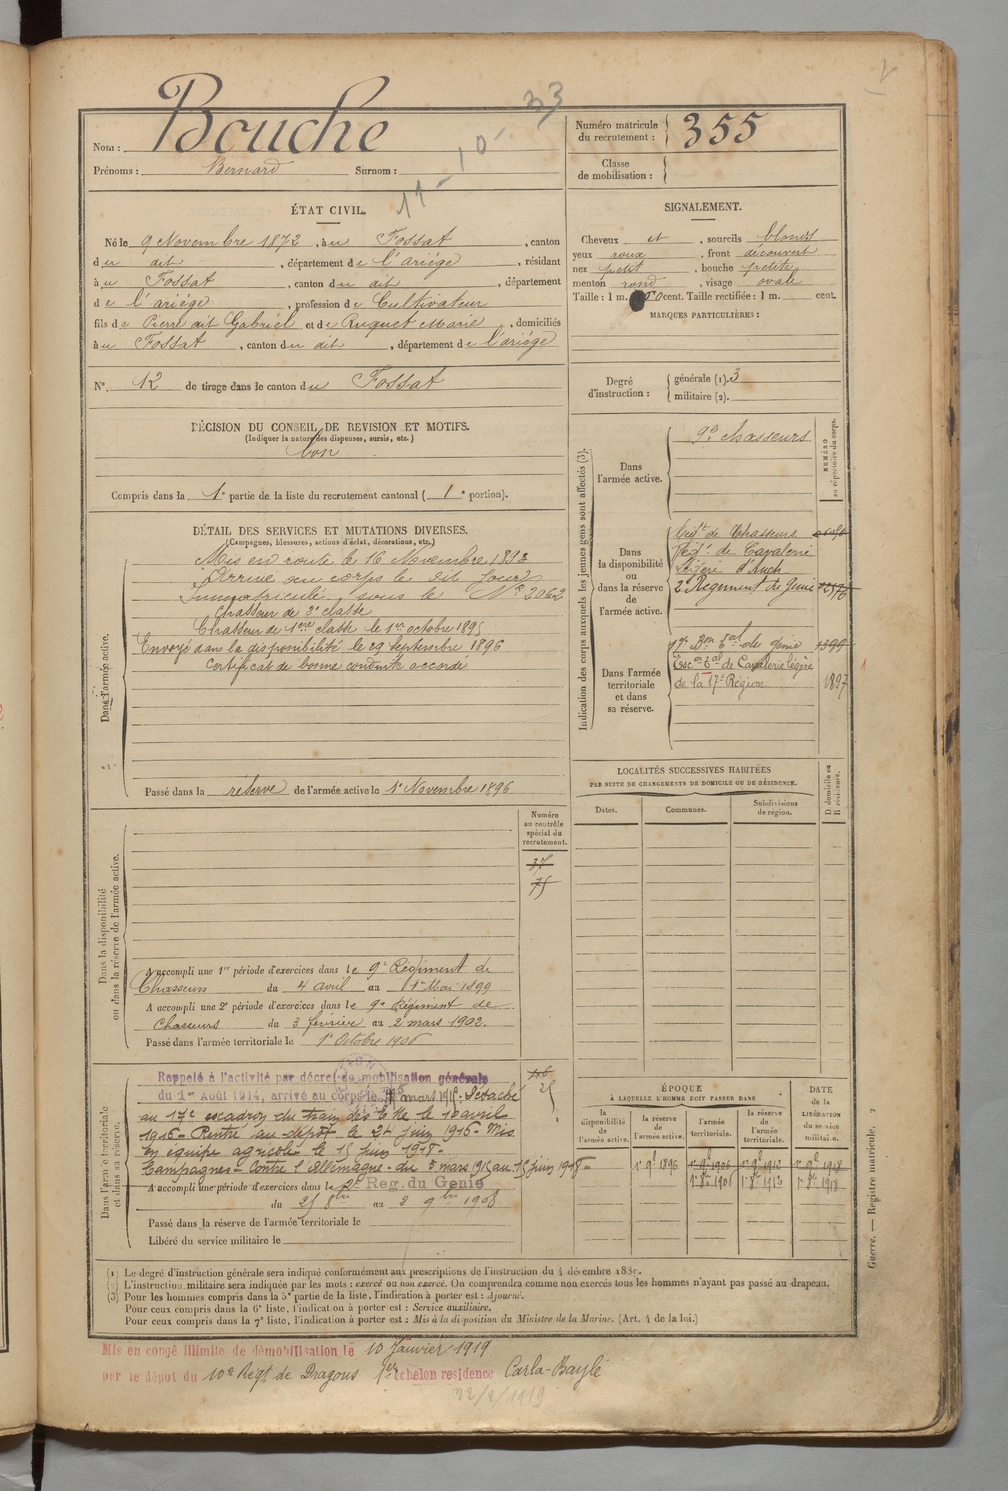 33
Nom : Bouche
Prénoms : Bernard Surnom :
11-10
Numéro matricule du recrutement : 355
Classe de mobilisation :
ÉTAT CIVIL.
Né le 9 Novembre 1872, au Fossat, canton
du dit, département de l'ariége, résidant
au Fossat, canton du dit, département
de l'ariége, profession de Cultivateur
fils de Pierre dit Gabriel et de Ruquet Marie, domiciliés
au Fossat, canton du dit, département de l'ariége
N° 12 de tirage dans le canton du Fossat
SIGNALEMENT.
Cheveux et, sourcils blonds
yeux roux, front découvert
nez petit, bouche petite
menton rond, visage ovale
Taille : 1 m. cent. Taille rectifiée : 1 m. cent.
MARQUES PARTICULIÈRES :
Degré d'instruction : générale (1). 3
militaire (2).
DÉCISION DU CONSEIL DE REVISION ET MOTIFS.
(Indiquer la nature des dispenses, sursis, etc.)
bon
Compris dans la 1e partie de la liste du recrutement cantonal (1e portion).
DÉTAIL DES SERVICES ET MUTATIONS DIVERSES.
(Campagnes, blessures, actions d'éclat, décorations, etc.)
Dans l'armée active.
Mis en route le 16 Novembre 1893
Arrivé au corps le dit jour
Immatriculé sous le N° 2062
Chasseur de 2e classe
Chasseur de 1ère classe le 1er octobre 1895
Envoyé dans la disponibilité le 29 septembre 1896
Certificat de bonne conduite accordé
Passé dans la réserve de l'armée active le 1e Novembre 1896
Indication des corps auxquels les jeunes gens sont affectés (3).
NUMÉRO au répertoire du corps.
Dans l'armée active.
9e chasseurs
Dans la disponibilité ou dans la réserve de l'armée active.
Régt de Chasseurs
de Cavalerie
Légère d'Auch
2e Régiment de Génie
Dans l'armée territoriale et dans sa réserve.
17e Bon tal du génie 1399
Escon tal de Cavalerie légère
de la 17e Région 1897
LOCALITÉS SUCCESSIVES HABITÉES
PAR SUITE DE CHANGEMENTS DE DOMICILE OU DE RÉSIDENCE.
D domicile ou R résidence.
Dates. Communes. Subdivisions de région.
Dans la disponibilité ou dans la réserve de l'armée active.
Numéro au contrôle spécial du recrutement.
75
A accompli une 1re période d'exercices dans le 9e Régiment de
Chasseurs du 4 avril au 1er Mai 1899
A accompli une 2e période d'exercices dans le 9e Régiment de
Chasseurs du 3 février au 2 mars 1902.
Passé dans l'armée territoriale le 1e Octobre 1906
Dans l'armée territoriale et dans sa réserve.
Rappelé à l'activité par décret de mobilisation générale
du 1er Août 1914, arrivé au corps le mars 1915. Détaché
au 17e escadron du train des E Me le 10 avril
1916 - Rentré au dépôt le 24 juin 1916 - Mis
en équipe agricole le 15 juin 1918 -
Campagnes - Contre l'Allemagne - du 5 mars 1915 au 15 juin 1918 -
A accompli une période d'exercices dans le 2e Reg. du Génie
du 25 8bre au 2 9bre 1908
Passé dans la réserve de l'armée territoriale le
Libéré du service militaire le
ÉPOQUE
À LAQUELLE L'HOMME DOIT PASSER DANS
DATE de la LIBÉRATION du service militaire.
la disponibilité de l'armée active. la réserve de l'armée active. l'armée territoriale. la réserve de l'armée territoriale.
1e 9e 1896 1e 9e 1906 1e 9e 1912 1e 9e 1918
1e 8re 1906 1e 8re 1913 1e 8re 1918
Guerre. — Registre matricule. 2
(1) Le degré d'instruction générale sera indiqué conformément aux prescriptions de l'instruction du 4 décembre 1889.
(2) L'instruction militaire sera indiquée par les mots : exercé ou non exercé. On comprendra comme non exercés tous les hommes n'ayant pas passé au drapeau.
(3) Pour les hommes compris dans la 5e partie de la liste, l'indication à porter est : Ajourné.
Pour ceux compris dans la 6e liste, l'indication à porter est : Service auxiliaire.
Pour ceux compris dans la 7e liste, l'indication à porter est : Mis à la disposition du Ministre de la Marine. (Art. 4 de la loi.)
Mis en congé illimité de démobilisation le 10 Janvier 1919
par le dépôt du 10e Régt de Dragons 1er échelon residence Carla-Bayle